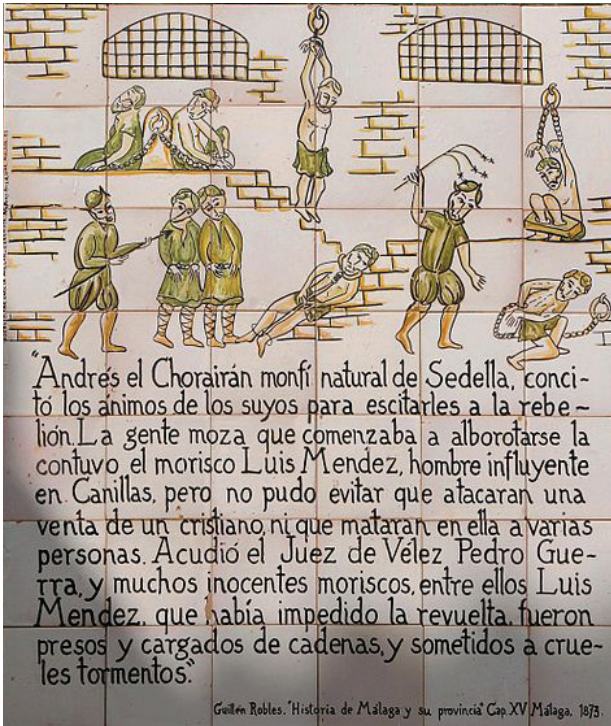 "Andrés el Chorairán monfí natural de Sedella, conci-
tó los ánimos de los suyos para escitarles a la rebe-
lión. La gente moza que comenzaba a alborotarse la
contuvo el morisco Luis Mendez, hombre influyente
en Canillas, pero no pudo evitar que atacaran una
venta de un cristiano, ni que mataran en ella a varias
personas. Acudió el Juez de Vélez Pedro Gue-
rra, y muchos inocentes moriscos, entre ellos Luis
Mendez, que había impedido la revuelta, fueron
presos y cargados de cadenas, y sometidos a crue-
les tormentos."
Guillén Robles. "Historia de Málaga y su provincia" Cap. XV Málaga, 1873.